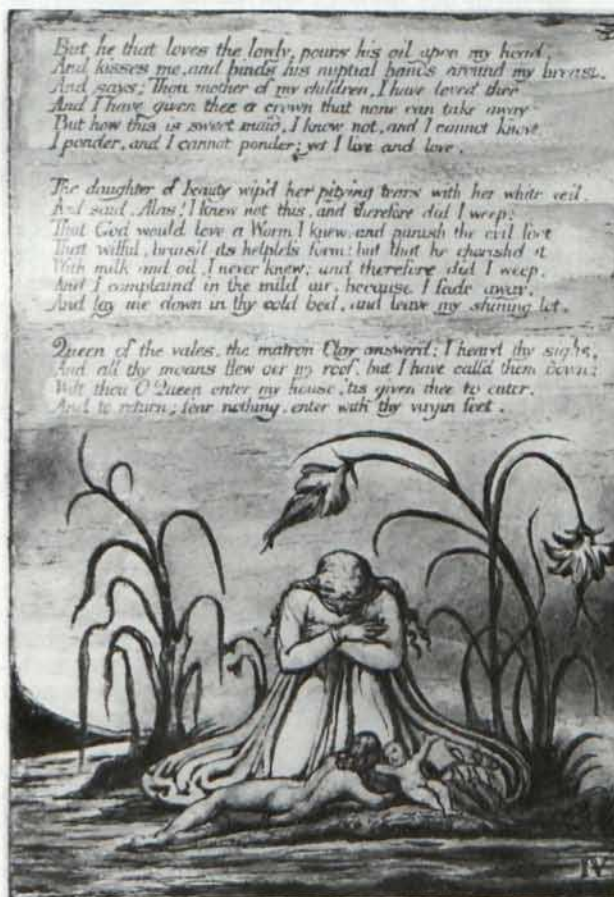 But he that loves the lowly, pours his oil upon my head,
And kisses me, and binds his nuptial bands around my breast.
And says; Thou mother of my children, I have loved thee
And I have given thee a crown that none can take away
But how this is sweet maid, I know not, and I cannot know
I ponder, and I cannot ponder; yet I live and love.
The daughter of beauty wip'd her pitying tears with her white veil,
And said, Alas! I knew not this, and therefore did I weep:
That God would love a Worm I knew, and punish the evil foot
That wilful, bruis'd its helpless form: but that he cherish'd it
With milk and oil, I never knew; and therefore did I weep,
And I complaind in the mild air, because I fade away,
And lay me down in thy cold bed, and leave my shining lot.
Queen of the vales, the matron Clay answerd; I heard thy sighs,
And all thy moans flew o'er my roof, but I have call'd them down:
Wilt thou O Queen enter my house, 'tis given thee to enter,
And to return; fear nothing, enter with thy virgin feet.
IV